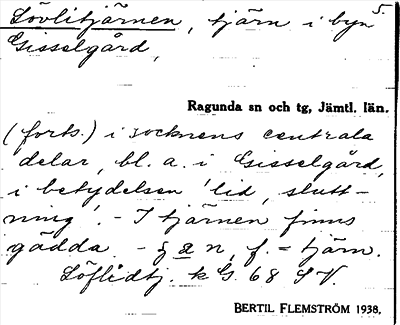 5.
Lövlitjärnen, tjärn i byn
Gisselgård,
Ragunda sn och tg, Jämtl. län.
(forts.) i socknens centrala
delar, bl. a. i Gisselgård,
i betydelsen 'lid, slutt-
ning'. - I tjärnen finns
gädda. - n, f. = tjärn.
Löflidtj. k G. 68 S V.
BERTIL FLEMSTRÖM 1938.